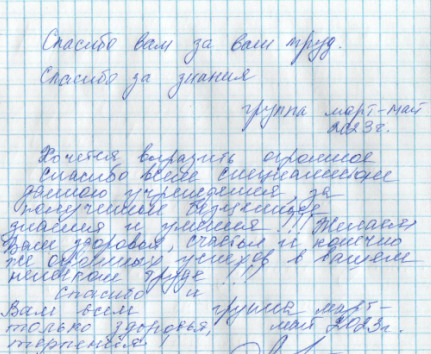 Спасибо вам за ваш труд.
Спасибо за знания
группа март-май
2023г.
Хочется выразить огромное
спасибо всем специалистам
данного учреждения, за
полученные
знания и умения!!! Желаем
Вам здоровья, счастья и, конечно
же огромных успехов в вашем
нелегком труде!!!
Спасибо и
Вам всем группа март-
только здоровья, май 2023г.
терпения!